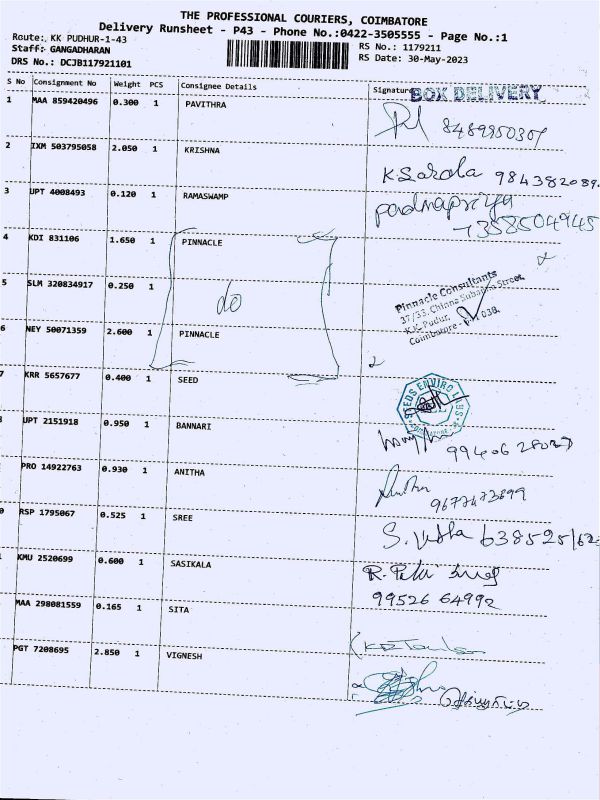 THE PROFESSIONAL COURIERS, COIMBATORE
Delivery Runsheet - P43 - Phone No.:0422-3505555 - Page No.:1
Route: KK PUDHUR-1-43
Staff: GANGADHARAN
DRS No.: DCJB117921101
RS No.: 1179211
RS Date: 30-May-2023
S No Consignment No Weight PCS Consignee Details Signature
BOX DELIVERY
1 MAA 859420496 0.300 1 PAVITHRA
8489950307
2 IXM 503795058 2.050 1 KRISHNA
K Sarala 984382089
3 UPT 4008493 0.120 1 RAMASWAMP
padmapriya
7358504945
4 KDI 831106 1.650 1 PINNACLE
5 SLM 320834917 0.250 1 do
Pinnacle Consultants
37/33, Chinna Subanna Street,
K.K. Pudur,
Coimbatore - 641 038.
6 NEY 50071359 2.600 1 PINNACLE
7 KRR 5657677 0.400 1 SEED
UPT 2151918 0.950 1 BANNARI
PRO 14922763 0.930 1 ANITHA
Anitha
9677473899
0 RSP 1795067 0.525 1 SREE
KMU 2520699 0.600 1 SASIKALA
99526 64992
MAA 298081559 0.165 1 SITA
PGT 7208695 2.850 1 VIGNESH